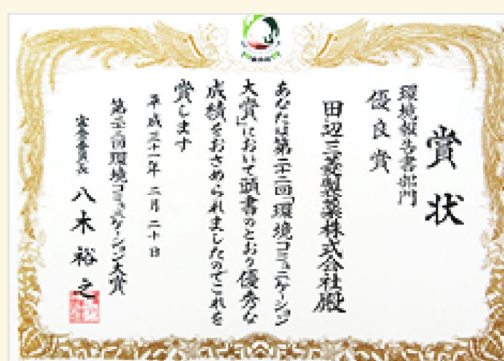 賞状
環境報告書部門
優良賞
田辺三菱製薬株式会社殿
あなたは第二十二回「環境コミュニケーション
大賞」において頭書のとおり優秀な
成績をおさめられましたのでこれを
賞します
平成三十一年二月二十日
第二十二回環境コミュニケーション大賞
審査委員長 八木裕之